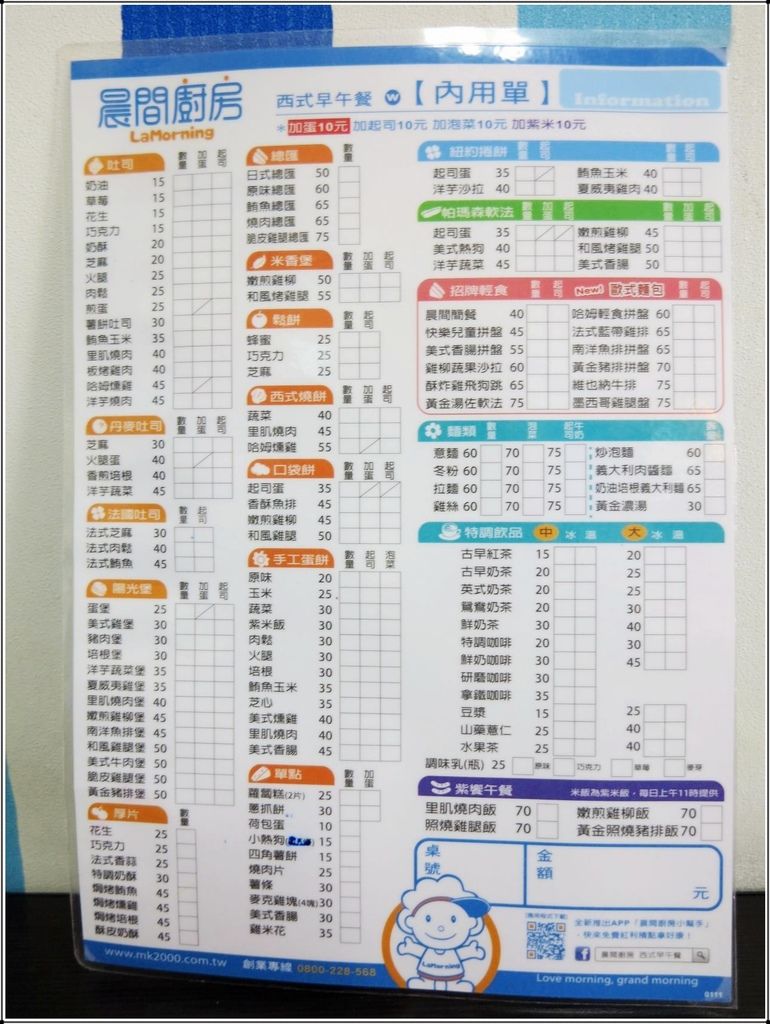 晨間廚房
LaMorning
西式早午餐 W 【內用單】 Information
*加蛋10元 加起司10元 加泡菜10元 加紫米10元
吐司 數量 加蛋 起司
奶油 15
草莓 15
花生 15
巧克力 15
奶酥 20
芝麻 20
火腿 25
肉鬆 25
煎蛋 25
薯餅吐司 30
鮪魚玉米 35
里肌燒肉 40
板烤雞肉 40
哈姆燻雞 45
洋芋燒肉 45
丹麥吐司 數量 加蛋 起司
芝麻 30
火腿蛋 40
香煎培根 40
洋芋蔬菜 45
法國吐司 數量 起司
法式芝麻 30
法式肉鬆 40
法式鮪魚 45
陽光堡 數量 加蛋 起司
蛋堡 25
美式雞堡 30
豬肉堡 30
培根堡 30
洋芋蔬菜堡 35
夏威夷雞堡 35
里肌燒肉堡 40
嫩煎雞柳堡 45
南洋魚排堡 45
和風雞腿堡 50
美式牛肉堡 50
脆皮雞腿堡 50
黃金豬排堡 50
厚片 數量
花生 25
巧克力 25
法式香蒜 25
特調奶酥 30
焗烤鮪魚 45
焗烤燻雞 45
焗烤培根 45
酥皮奶酥 45
總匯 數量
日式總匯 50
原味總匯 60
鮪魚總匯 65
燒肉總匯 65
脆皮雞腿總匯 75
米香堡 數量 加蛋 起司
嫩煎雞柳 50
和風烤雞腿 55
鬆餅 數量
蜂蜜 25
巧克力 25
芝麻 25
西式燒餅 數量 加蛋 起司
蔬菜 40
里肌燒肉 45
哈姆燻雞 55
口袋餅 數量 加蛋 起司
起司蛋 35
香酥魚排 45
嫩煎雞柳 45
和風雞腿 50
手工蛋餅 數量 起司 泡菜
原味 20
玉米 25
蔬菜 30
紫米飯 30
肉鬆 30
火腿 30
培根 30
鮪魚玉米 35
芝心 35
美式燻雞 40
里肌燒肉 40
美式香腸 45
單點 數量 加蛋
蘿蔔糕(2片) 25
蔥抓餅 30
荷包蛋 10
小熱狗 15
四角薯餅 15
燒肉片 25
薯條 30
麥克雞塊(4塊) 30
美式香腸 30
雞米花 35
紐約捲餅 數量 加蛋 起司 數量 加蛋 起司
起司蛋 35 鮪魚玉米 40
洋芋沙拉 40 夏威夷雞肉 40
帕瑪森軟法 數量 加蛋 起司 數量 加蛋 起司
起司蛋 35 嫩煎雞柳 45
美式熱狗 40 和風烤雞腿 50
洋芋蔬菜 45 美式香腸 50
招牌輕食 數量 起司 New! 歐式麵包 數量 起司
晨間簡餐 40 哈姆輕食拼盤 60
快樂兒童拼盤 45 法式藍帶雞排 65
美式香腸拼盤 55 南洋魚排拼盤 65
雞柳蔬果沙拉 60 黃金豬排拼盤 70
酥炸雞飛狗跳 65 維也納牛排 75
黃金湯佐軟法 75 墨西哥雞腿盤 75
麵類 數量 泡菜 起司牛奶 數量
意麵 60 70 75 炒泡麵 60
冬粉 60 70 75 義大利肉醬麵 65
拉麵 60 70 75 奶油培根義大利麵 65
雞絲 60 70 75 黃金濃湯 30
特調飲品 中 冰 溫 大 冰 溫
古早紅茶 15 20
古早奶茶 20 25
英式奶茶 20 25
鴛鴦奶茶 20 30
鮮奶茶 30 40
特調咖啡 20 30
鮮奶咖啡 30 45
研磨咖啡 30
拿鐵咖啡 35
豆漿 15 25
山藥薏仁 25 40
水果茶 25 40
調味乳(瓶) 25 原味 巧克力 草莓 麥芽
紫饗午餐 米飯為紫米飯，每日上午11時提供
里肌燒肉飯 70 嫩煎雞柳飯 70
照燒雞腿飯 70 黃金照燒豬排飯 70
桌號 金額 元
LaMorning
全新推出APP「晨間廚房小幫手」
，快來免費紅利積點拿好康！
f 晨間廚房 西式早午餐
www.mk2000.com.tw 創業專線 0800-228-568
Love morning, grand morning
0111